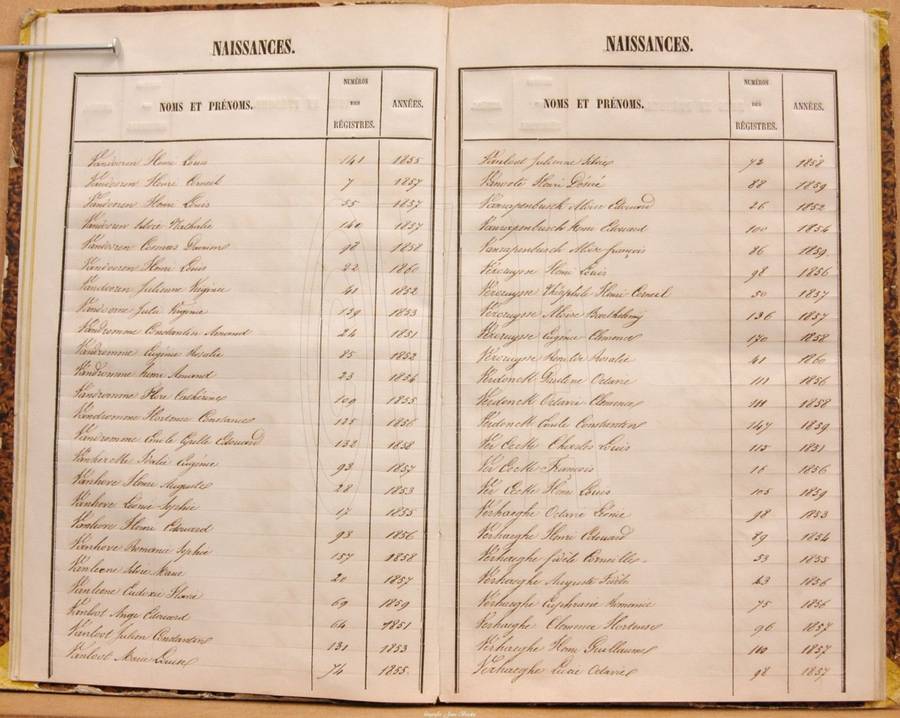 NAISSANCES.
NOMS ET PRÉNOMS. NUMÉROS DES RÉGISTRES. ANNÉES.
Vandoren Henri Louis 141 1855
Vandoren Henri Corneil 7 1857
Vandoren Henri Louis 55 1857
Vandoren Nathalie 140 1857
Vandoren 98 1858
Vandoren Henri Louis 22 1860
Vandoren Julienne Virginie 41 1852
Vandorme Julie Virginie 139 1853
Vandromme Constantin Amand 24 1851
Vandromme Eugénie Rosalie 85 1852
Vandromme Amand 23 1854
Vandromme Flore Catherine 109 1855
Vandromme Hortense Constance 125 1856
Vandromme Emile Cyrille Edouard 132 1858
Eugénie 93 1857
Vanhove Henri Auguste 28 1853
Vanhove Léonie Sophie 17 1855
Vanhove Henri Edouard 93 1856
Vanhove Romanie Sophie 157 1858
Marie 20 1857
69 1859
Vanloot Ange Edouard 64 1851
Vanloot Julien Constantin 131 1853
Vanloot Marie Louise 74 1855
NAISSANCES.
NOMS ET PRÉNOMS. NUMÉROS DES RÉGISTRES. ANNÉES.
Vanloot Julienne 72 1858
Henri Désiré 88 1859
Vanrapenbusch Edouard 26 1852
Vanrapenbusch Henri Edouard 100 1854
Vanrapenbusch François 86 1859
Vercruysse Henri Louis 98 1856
Vercruysse Théophile Henri Corneil 50 1857
Vercruysse Barthélemy 136 1857
Vercruysse Eugénie Clémence 170 1858
Vercruysse Rosalie 41 1860
Verdonck Octavie 111 1856
Verdonck Octavie Clémence 111 1858
Verdonck Emile Constantin 147 1859
Charles Louis 115 1851
François 16 1856
Henri Louis 105 1859
Verhaeghe Octavie 98 1853
Verhaeghe Henri Edouard 89 1854
Verhaeghe 53 1855
Verhaeghe Auguste 43 1856
Verhaeghe Euphrasie Romanie 75 1856
Verhaeghe Clémence Hortense 96 1857
Verhaeghe Henri Guillaume 110 1857
Verhaeghe Lucie Octavie 98 1857